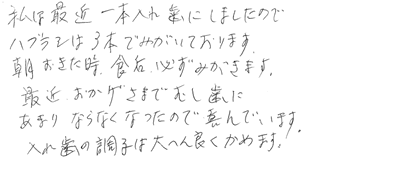 私は最近一本入れ歯にしましたので
ハブラシは3本でみがいております。
朝おきた時、食后、必ずみがきます。
最近、おかげさまでむし歯に
あまりならなくなったので喜んでいます。
入れ歯の調子は大へん良くかめます。